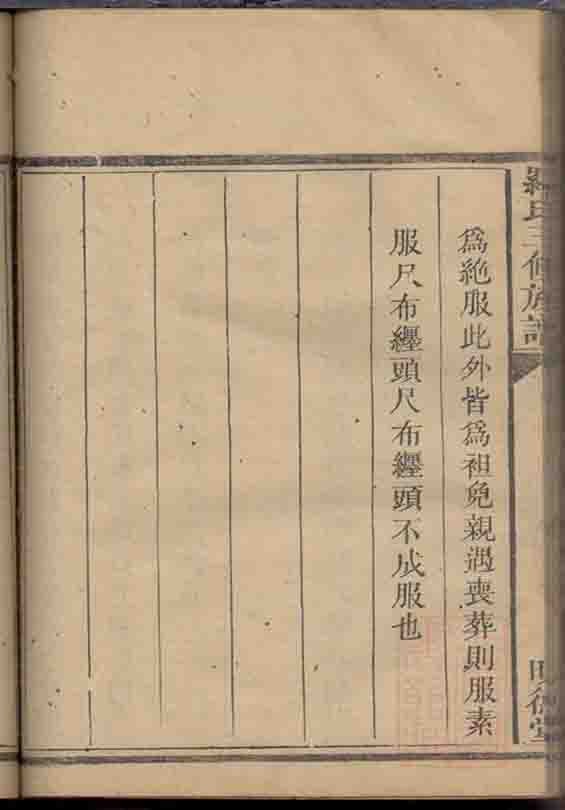 羅氏三修族譜
明德堂
為絶服此外皆為袒免親遇喪葬則服素
服尺布纏頭尺布纏頭不成服也